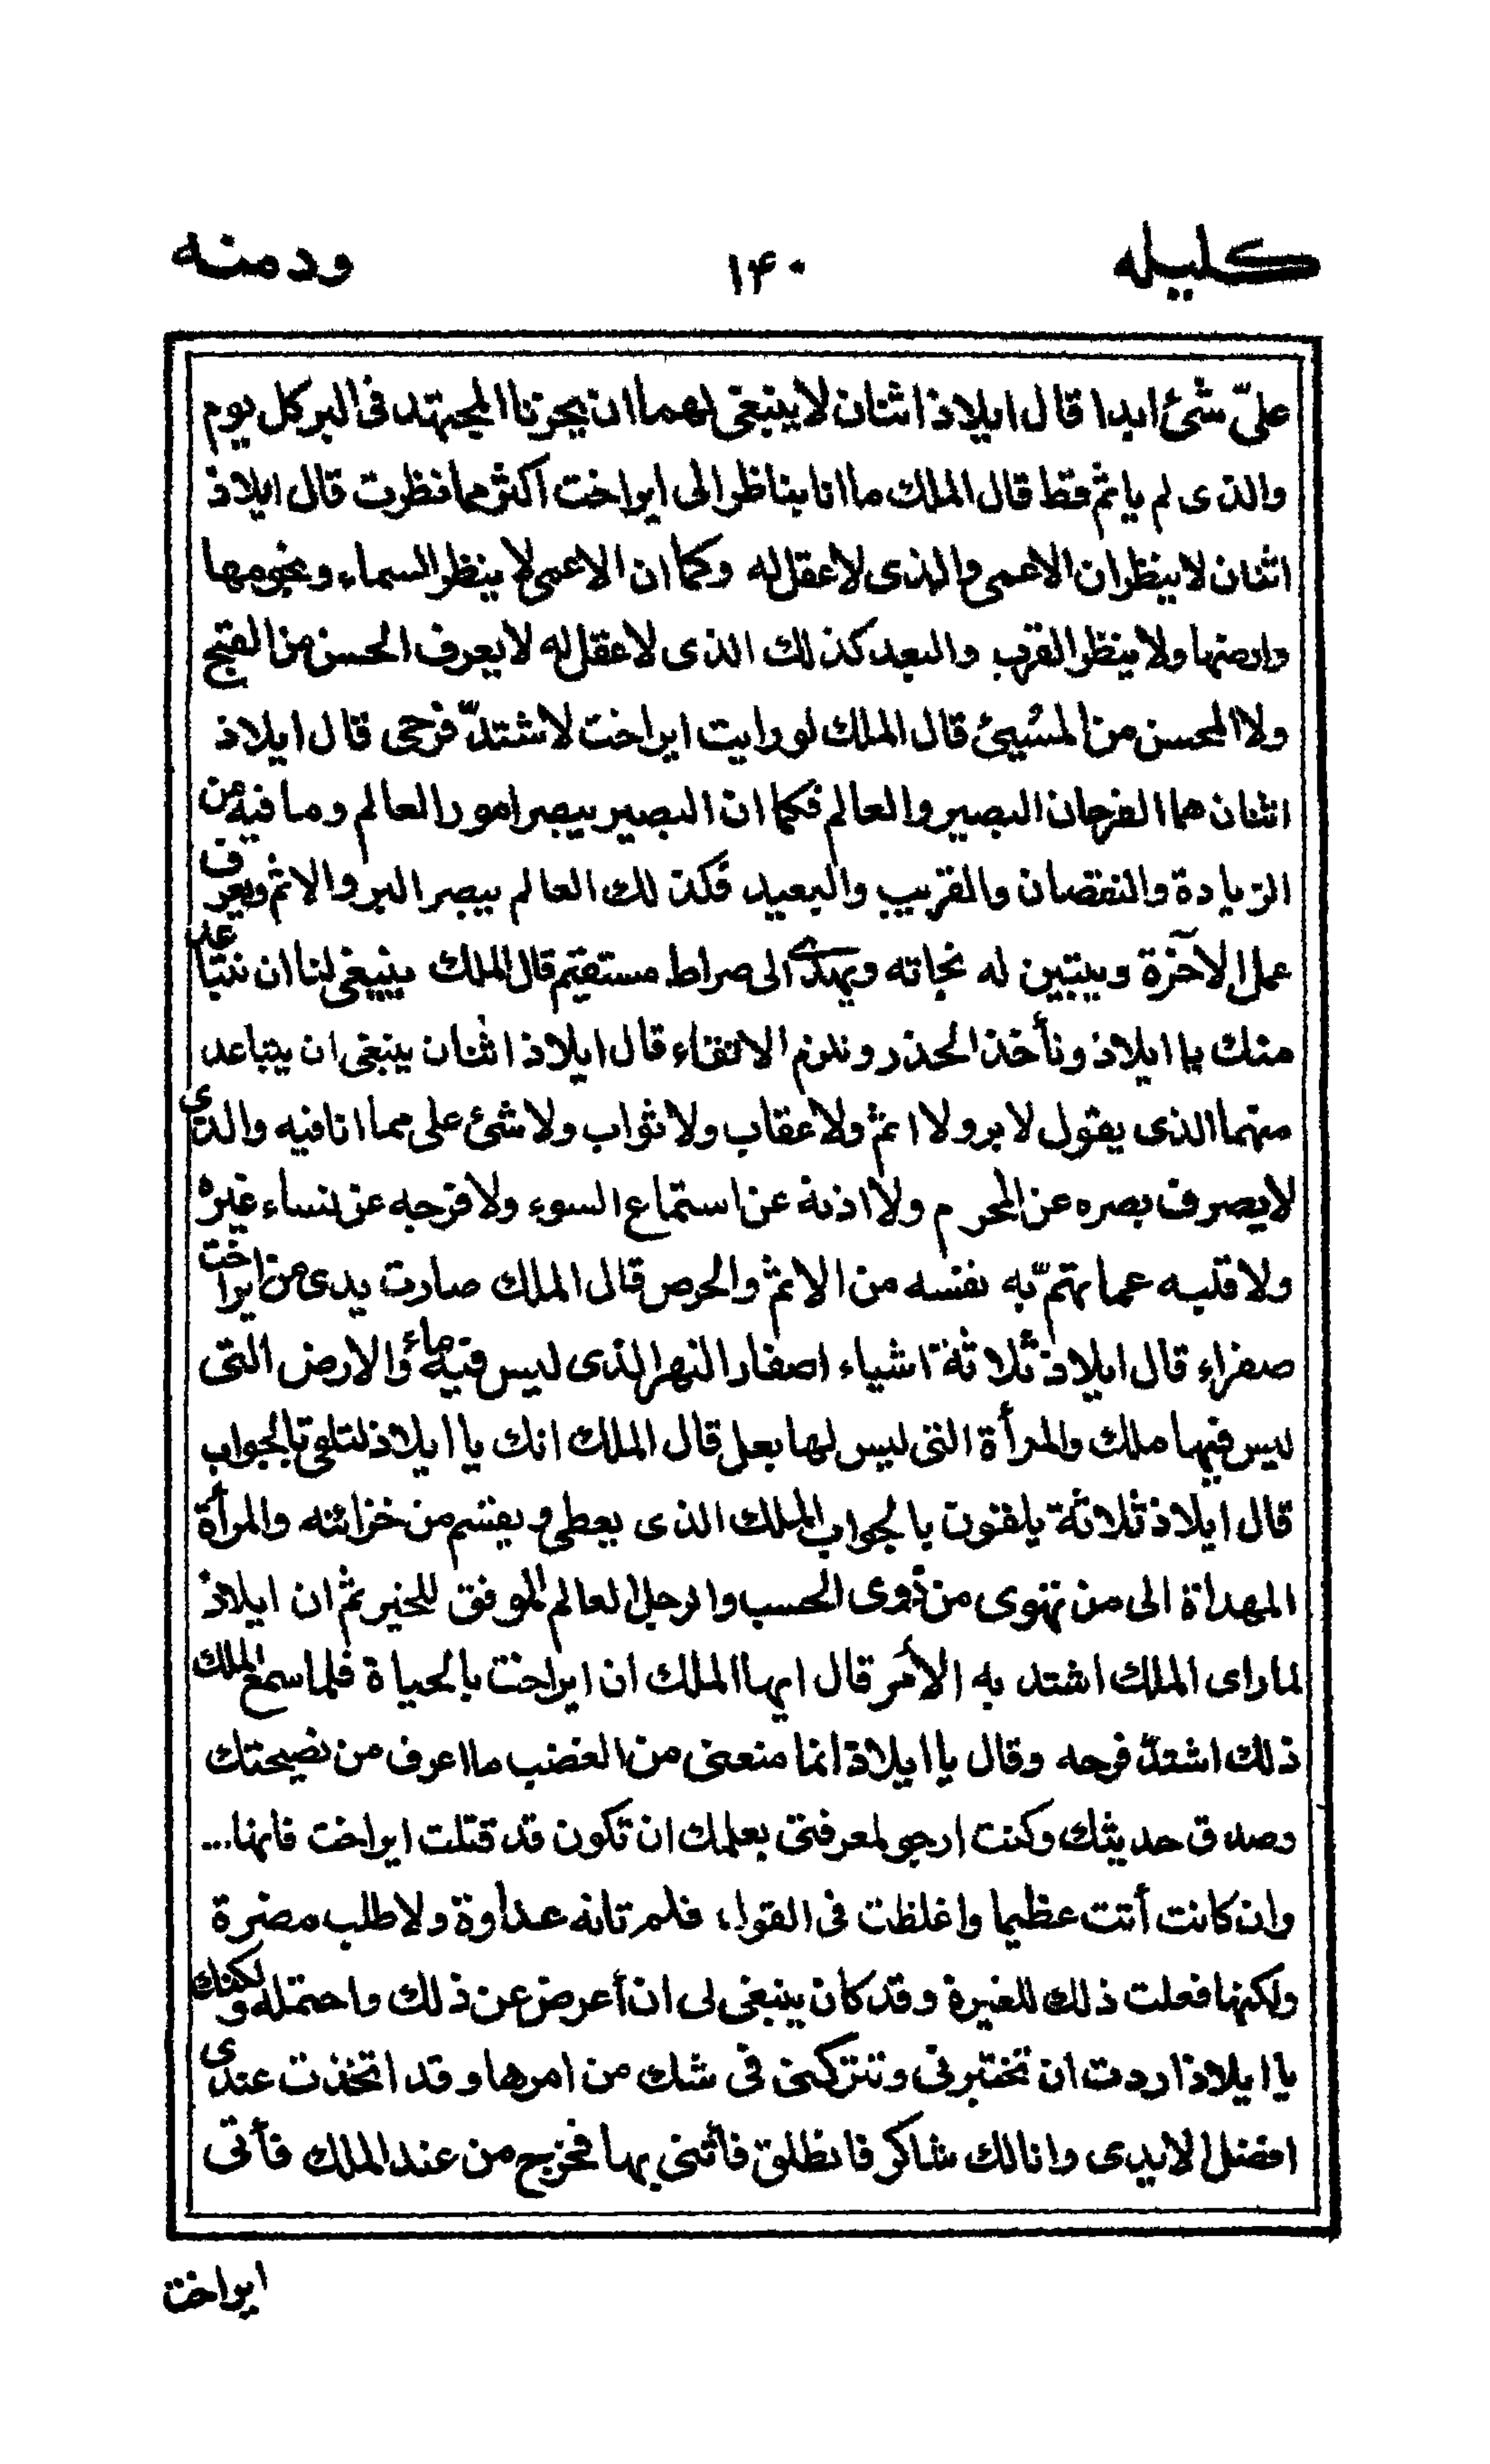 كليله ١۴٠ ودمنه
علىّ شئ ابدا قال ايلاذ اثنان لا ينبغى لهما ان يحزنا المجتهد فى البر كل يوم
والذى لم ياثم قط قال الملك ما انا بناظر الى ايراخت اكثر مما نظرت قال ايلاذ
اثنان لا ينظران الاعمى والذى لا عقل له وكما ان الاعمى لا ينظر السماء ونجومها
وارضها ولا ينظر القرب والبعد كذلك الذى لا عقل له لا يعرف الحسن من القبيح
ولا المحسن من المسُيئ قال الملك لو رايت ايراخت لاشتدّ فرحى قال ايلاذ
اثنان هما الفرحان البصير والعالم فكما ان البصير يبصر امور العالم وما فيه من
الزيادة والنقصان والقريب والبعيد فكذلك العالم يبصر البر والاثم ويعرف
عمل الآخرة ويتبين له نجاته ويهدى الى صراط مستقيم قال الملك ينبغى لنا ان نتباعد
منك يا ايلاذ ونأخذ الحذر ونلزم الاتقاء قال ايلاذ اثنان ينبغى ان يتباعد
منهما الذى يقول لا بر ولا اثم ولا عقاب ولا ثواب ولا شئ على مما انا فيه والذى
لا يصرف بصره عن المحرم ولا اذنه عن استماع السوء ولا فرجه عن نساء غيره
ولا قلبه عما تهتمّ به نفسه من الاثم والحرص قال الملك صارت يدى من ايراخت
صفراء قال ايلاذ ثلاثة اشياء اصفار النهر الذى ليس فيه ماء والارض التى
ليس فيها ملك والمرأة التى ليس لها بعل قال الملك انك يا ايلاذ لتلقى بالجواب
قال ايلاذ ثلاثة يلقون بالجواب الملك الذى يعطى ويقسم من خزائنه والمرأة
المهداة الى من تهوى من ذوى الحسب والرجل العالم الموفق للخير ثم ان ايلاذ
لما راى الملك اشتد به الأمر قال ايها الملك ان ايراخت بالحياة فلما سمع الملك
ذلك اشتدّ فرحه وقال يا ايلاذ انما منعنى من الغضب ما اعرف من نصيحتك
وصدق حديثك وكنت ارجو لمعرفتى بعلمك ان تكون قد قتلت ايراخت فانها...
وان كانت أتت عظيما واغلظت فى القول، فلم تاته عداوة ولا طلب مضرة
ولكنها فعلت ذلك للغيرة وقد كان ينبغى لى ان أعرض عن ذلك واحتمله ولكنك
يا ايلاذ اردت ان تختبرنى وتتركنى فى شك من امرها وقد اتخذت عندى
افضل الايدى وانا لك شاكر فانطلق فأتنى بها فخرج من عند الملك فأتى
ايراخت